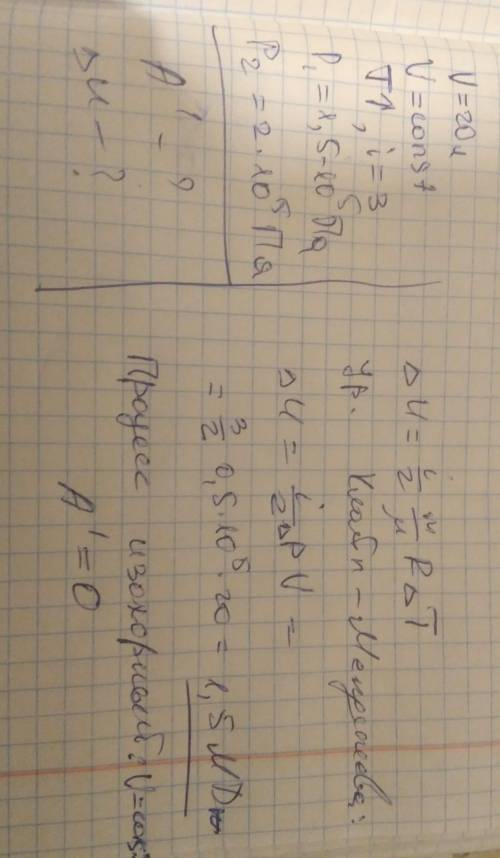 V=20л
V=const
T↑, i=3
P₁=1,5·10⁵ Па
P₂=2·10⁵ Па
A' - ?
ΔU - ?
ΔU = i/2 m/μ RΔT
Ур. Клап - Менделеева:
ΔU = i/2 ΔPV =
= 3/2 0,5·10⁵·20 = 1,5 МДж
Процесс изохорный: V=cons
A' = 0